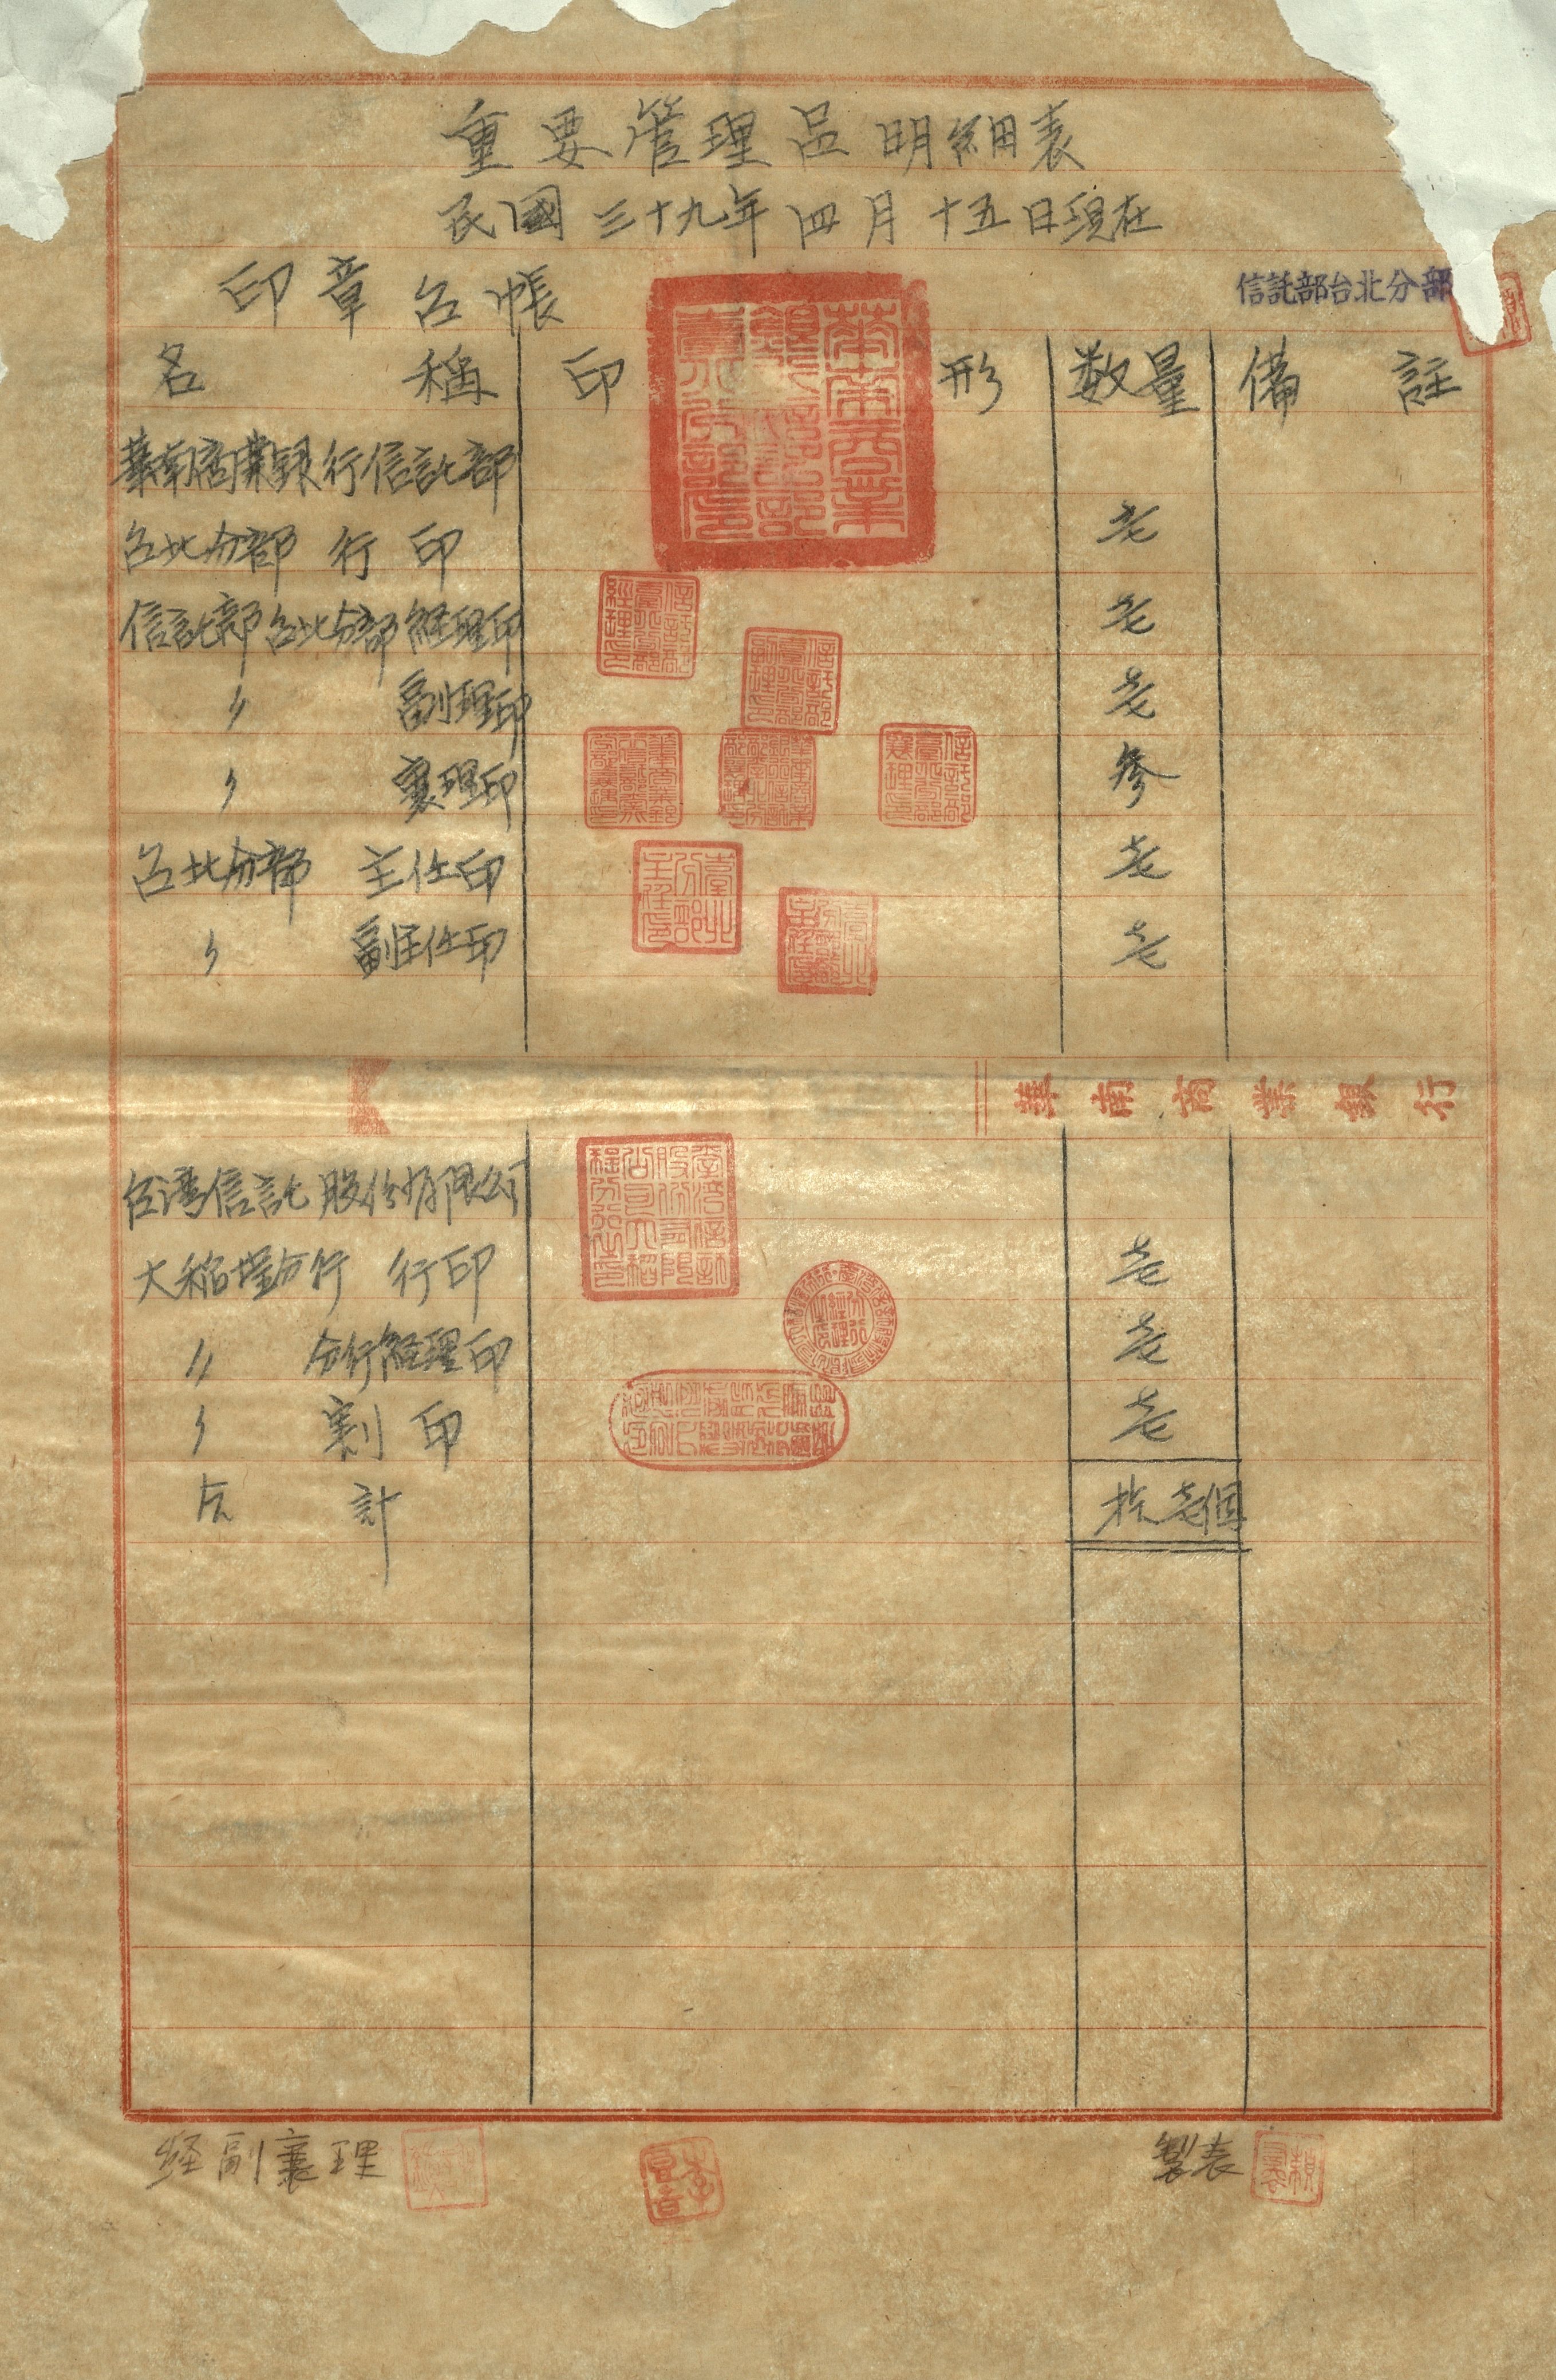 重要管理品明細表
民國三十九年四月十五日現在
印章台帳
信託部台北分部
名稱 印形 数量 備註
華南商業銀行信託部
台北分部 行印 壱
信託部台北分部経理印 壱
〃 副理印 壱
〃 襄理印 參
台北分部 主任印 壱
〃 副主任印 壱
華南商業銀行
台湾信託股份有限公司
大稲埕分行 行印 壱
〃 分行経理印 壱
〃 割印 壱
合計 拾壱個
経副襄理 製表